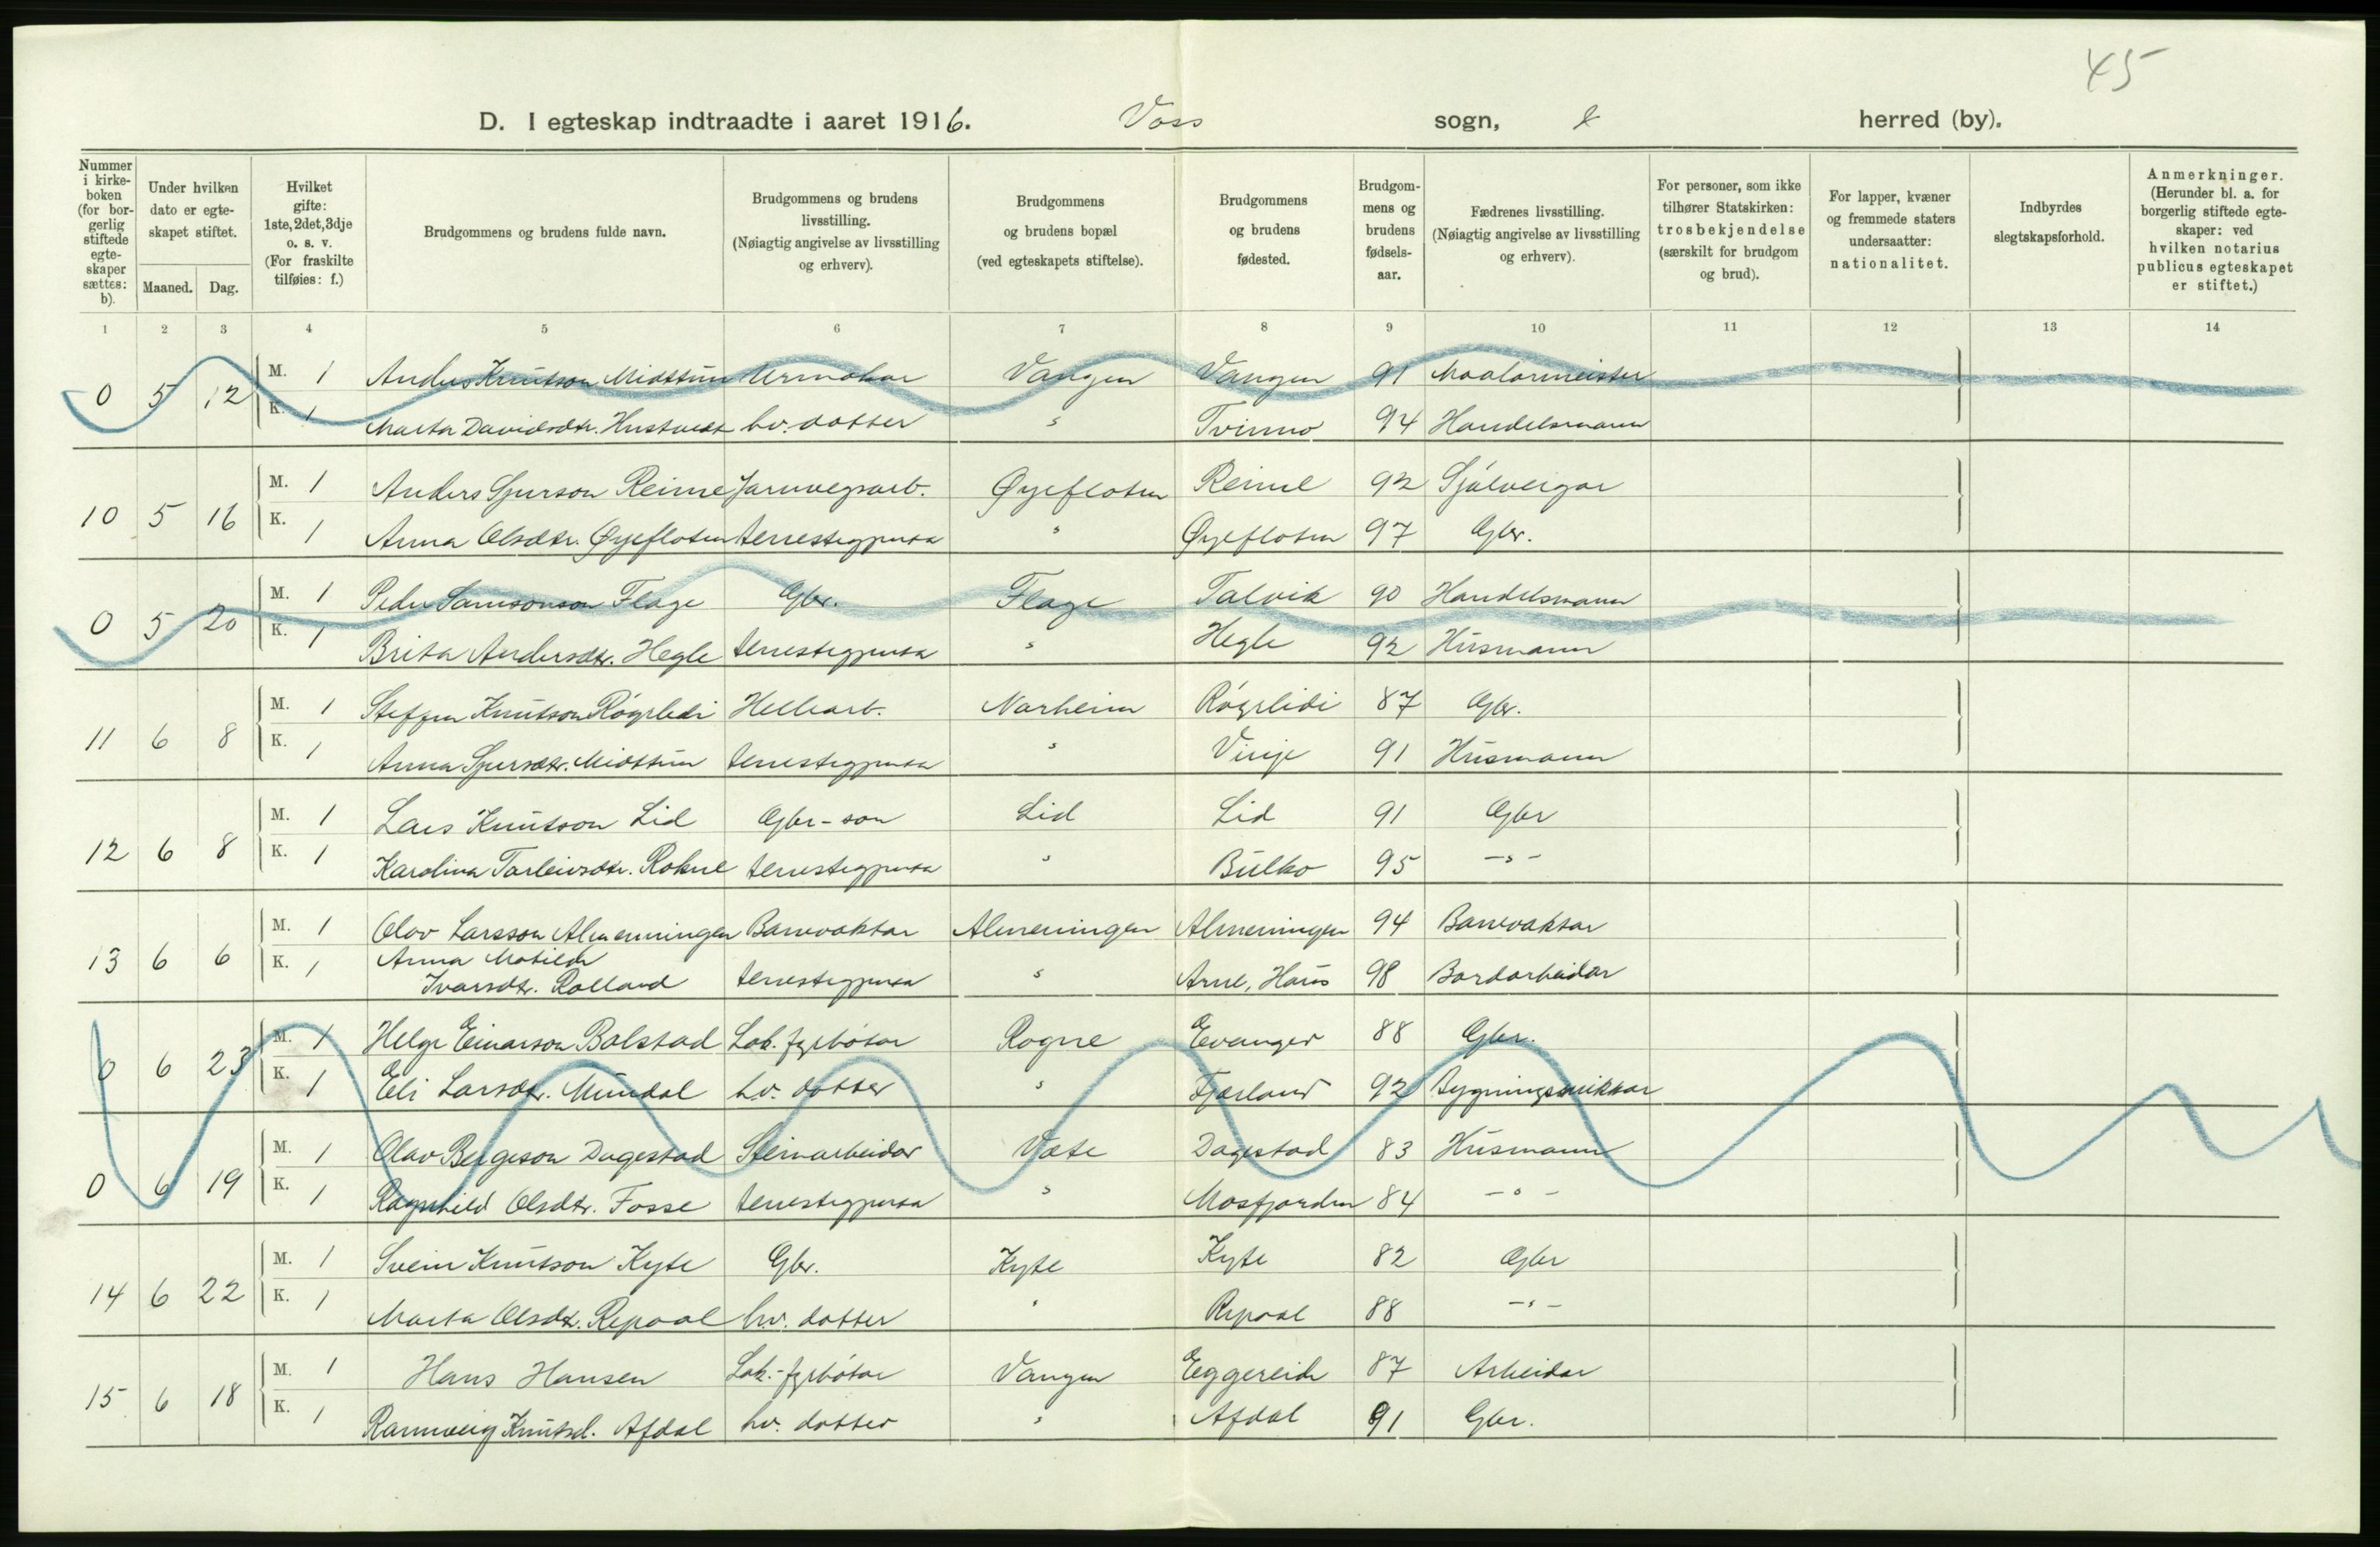 45
D. I egteskap indtraadte i aaret 1916. Voss sogn, herred (by).
Nummer i kirkeboken (for borgerlig stiftede egteskaper sættes: b).
Under hvilken dato er egteskapet stiftet.
Maaned. Dag.
Hvilket gifte: 1ste, 2det, 3dje o. s. v. (For fraskilte tilføies: f.)
Brudgommens og brudens fulde navn.
Brudgommens og brudens livsstilling. (Nøiagtig angivelse av livsstilling og erhverv).
Brudgommens og brudens bopæl (ved egteskapets stiftelse).
Brudgommens og brudens fødested.
Brudgommens og brudens fødselsaar.
Fædrenes livsstilling. (Nøiagtig angivelse av livsstilling og erhverv).
For personer, som ikke tilhører Statskirken: trosbekjendelse (særskilt for brudgom og brud).
For lapper, kvæner og fremmede staters undersaatter: nationalitet.
Indbyrdes slegtskapsforhold.
Anmerkninger. (Herunder bl. a. for borgerlig stiftede egteskaper: ved hvilken notarius publicus egteskapet er stiftet.)
1 2 3 4 5 6 7 8 9 10 11 12 13 14
0 5 12 M. 1 Anders Knutson Midttun Urmakar Vangen Vangen 91 Maalarmeister
K. 1 Marta Davidsdtr. Hustvedt hv. dotter " Tvinno 94 Handelsmann
10 5 16 M. 1 Anders Sjurson Reime Jarnvegsarb. Øyefloten Reime 92 Sjølveigar
K. 1 Anna Olsdtr. Øyefloten tenestegjenta " Øyefloten 97 Gbr.
0 5 20 M. 1 Peder Samsonson Flage Gbr. Flage Talvik 90 Handelsmann
K. 1 Brita Andersdtr. Hegle tenestegjenta " Hegle 92 Husmann
11 6 8 M. 1 Steffen Knutson Røgslidi Hellearb. Narheim Røgslidi 87 Gbr.
K. 1 Anna Sjursdtr. Midttun tenestegjenta " Vinje 91 Husmann
12 6 8 M. 1 Lars Knutson Lid Gbr-son Lid Lid 91 Gbr
K. 1 Karolina Torleivsdtr. Rokne tenestegjenta " Bulko 95 - " -
13 6 6 M. 1 Olav Larsson Almenningen Banevaktar Almenningen Almenningen 94 Banevaktar
K. 1 Anna Matilde
Ivarsdtr. Rolland tenestegjenta " Arne, Haus 98 Bordarbeidar
0 6 23 M. 1 Helge Einarson Bolstad Lok. fyrbøtar Rogne Evanger 88 Gbr.
K. 1 Eli Larsdtr. Mundal hv. dotter " Fjærland 92 Bygningsmikkar
0 6 19 M. 1 Olav Bergeson Dagestad Steinarbeidar Væte Dagestad 83 Husmann
K. 1 Ragnhild Olsdtr. Fosse tenestegjenta " Mosfjorden 84 - " -
14 6 22 M. 1 Svein Knutson Kyte Gbr. Kyte Kyte 82 Gbr
K. 1 Marta Olsdtr. Repaal hv. dotter " Repaal 88 - " -
15 6 18 M. 1 Hans Hansen Lok.-fyrbøtar Vangen Eggereide 87 Arbeidar
K. 1 Rannveig Knutsd. Afdal hv. dotter " Afdal 91 Gbr.